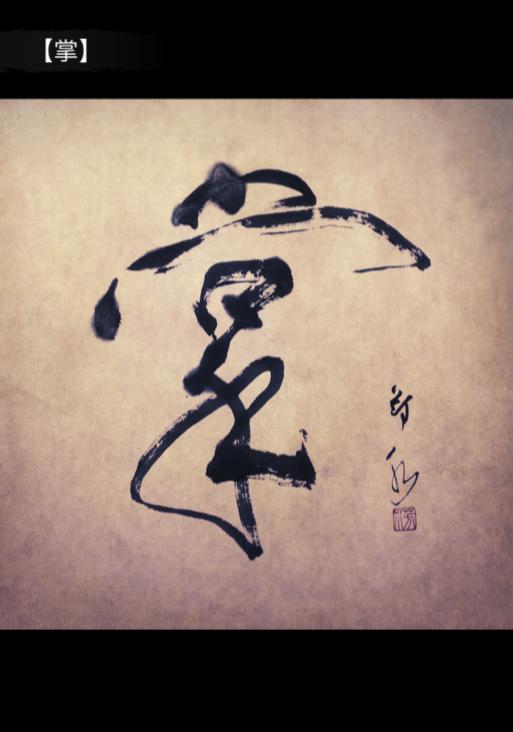 【掌】
掌